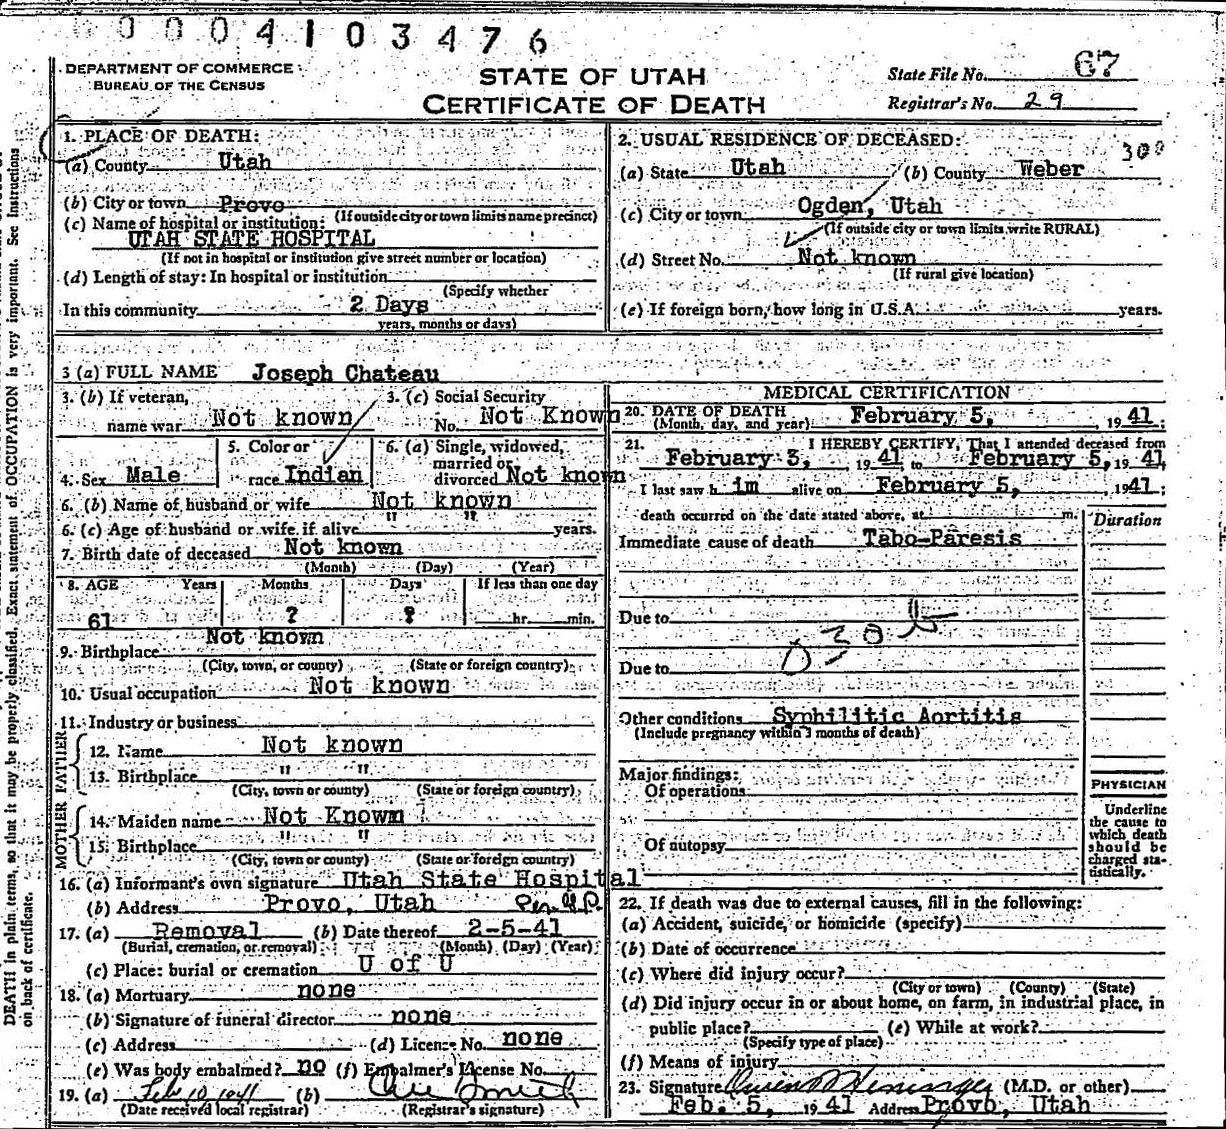 0004103476
DEPARTMENT OF COMMERCE
BUREAU OF THE CENSUS
STATE OF UTAH
CERTIFICATE OF DEATH
State File No. 67
Registrar's No. 29
1. PLACE OF DEATH:
(a) County Utah
(b) City or town Provo
(If outside city or town limits name precinct)
(c) Name of hospital or institution:
UTAH STATE HOSPITAL
(If not in hospital or institution give street number or location)
(d) Length of stay: In hospital or institution
(Specify whether
In this community 2 Days
years, months or days)
2. USUAL RESIDENCE OF DECEASED:
300
(a) State Utah (b) County Weber
(c) City or town Ogden, Utah
(If outside city or town limits write RURAL)
(d) Street No. Not known
(If rural give location)
(e) If foreign born, how long in U.S.A. years.
3 (a) FULL NAME Joseph Chateau
3. (b) If veteran,
name war Not known
3. (c) Social Security
No. Not Known
4. Sex Male
5. Color or
race Indian
6. (a) Single, widowed,
married or
divorced Not known
6. (b) Name of husband or wife Not known
6. (c) Age of husband or wife if alive " " years.
7. Birth date of deceased Not known
(Month) (Day) (Year)
8. AGE Years Months Days If less than one day
61 ? ? hr. min.
9. Birthplace Not known
(City, town, or county) (State or foreign country)
10. Usual occupation Not known
11. Industry or business
FATHER
12. Name Not known
13. Birthplace " "
(City, town or county) (State or foreign country)
MOTHER
14. Maiden name Not Known
15. Birthplace " "
(City, town or county) (State or foreign country)
16. (a) Informant's own signature Utah State Hospital
(b) Address Provo, Utah
17. (a) Removal (b) Date thereof 2-5-41
(Burial, cremation, or removal) (Month) (Day) (Year)
(c) Place: burial or cremation U of U
18. (a) Mortuary none
(b) Signature of funeral director none
(c) Address (d) License No. none
(e) Was body embalmed? no (f) Embalmer's License No.
19. (a) Feb 10, 1941 (b)
(Date received local registrar) (Registrar's signature)
MEDICAL CERTIFICATION
20. DATE OF DEATH February 5, 1941
(Month, day, and year)
21. I HEREBY CERTIFY, That I attended deceased from
February 3, 1941 to February 5, 1941
I last saw h im alive on February 5, 1941;
death occurred on the date stated above, at m.
Duration
Immediate cause of death Tabo-Paresis
Due to
030 b
Due to
Other conditions Syphilitic Aortitis
(Include pregnancy within 3 months of death)
Major findings:
Of operations
Of autopsy
PHYSICIAN
Underline
the cause to
which death
should be
charged sta-
tistically.
22. If death was due to external causes, fill in the following:
(a) Accident, suicide, or homicide (specify)
(b) Date of occurrence
(c) Where did injury occur?
(City or town) (County) (State)
(d) Did injury occur in or about home, on farm, in industrial place, in
public place? (e) While at work?
(Specify type of place)
(f) Means of injury
23. Signature (M.D. or other)
Feb. 5, 1941 Address Provo, Utah
DEATH in plain terms, so that it may be properly classified. Exact statement of OCCUPATION is very important. See Instructions
on back of certificate.